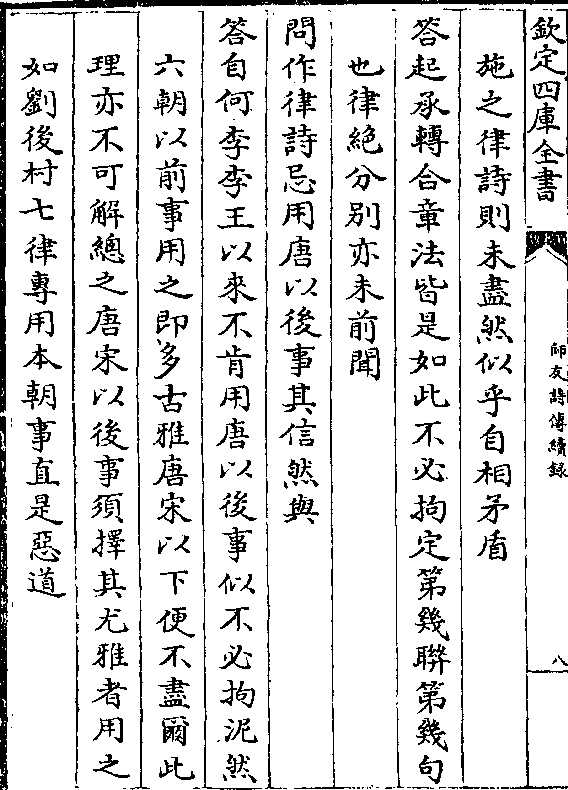 欽定四庫全書
師友詩傳續錄
八
施之律詩則未盡然似乎自相矛盾
答起承轉合章法皆是如此不必拘定第幾聯第幾句
也律絶分别亦未前聞
問作律詩忌用唐以後事其信然與
答自何李李王以來不肯用唐以後事似不必拘泥然
六朝以前事用之即多古雅唐宋以下便不盡爾此
理亦不可解總之唐宋以後事須擇其尤雅者用之
如劉後村七律專用本朝事直是惡道